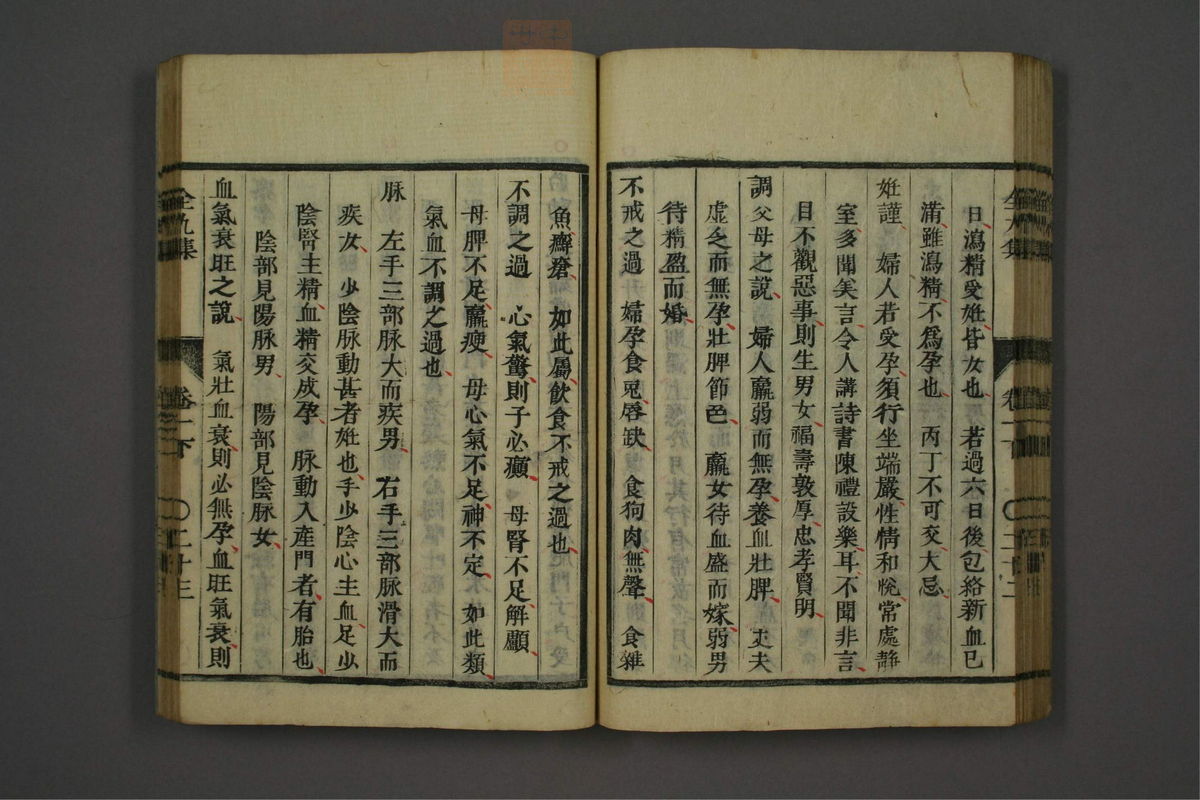 日瀉精受姙皆女也 若過六日後包絡新血已
滿雖瀉精不爲孕也 丙丁不可交大忌
姙謹 婦人若受孕須行坐端嚴性情和悅常處靜
室多聞美言令人講詩書陳禮設樂耳不聞非言
目不觀惡事則生男女福壽敦厚忠孝賢明
調父母之說 婦人羸弱而無孕養血壯脾 丈夫
虛乏而無孕壯脾節色 羸女待血盛而嫁弱男
待精盈而婚
不戒之過 婦孕食兎唇缺 食狗肉無聲 食雜
魚癬瘡如此屬飲食不戒之過也
不調之過 心氣驚則子必癲 母腎不足解顱
母脾不足羸瘦 母心氣不足神不定 如此類
氣血不調之過也
脉 左手三部脉大而疾男 右手三部脉滑大而
疾女 少陰脉動甚者姙也手少陰心主血足少
陰腎主精血精交成孕 脉動入産門者有胎也
陰部見陽脉男 陽部見陰脉女
血氣衰旺之說 氣壯血衰則必無孕血旺氣衰則
全九集 卷一下 〇二十三